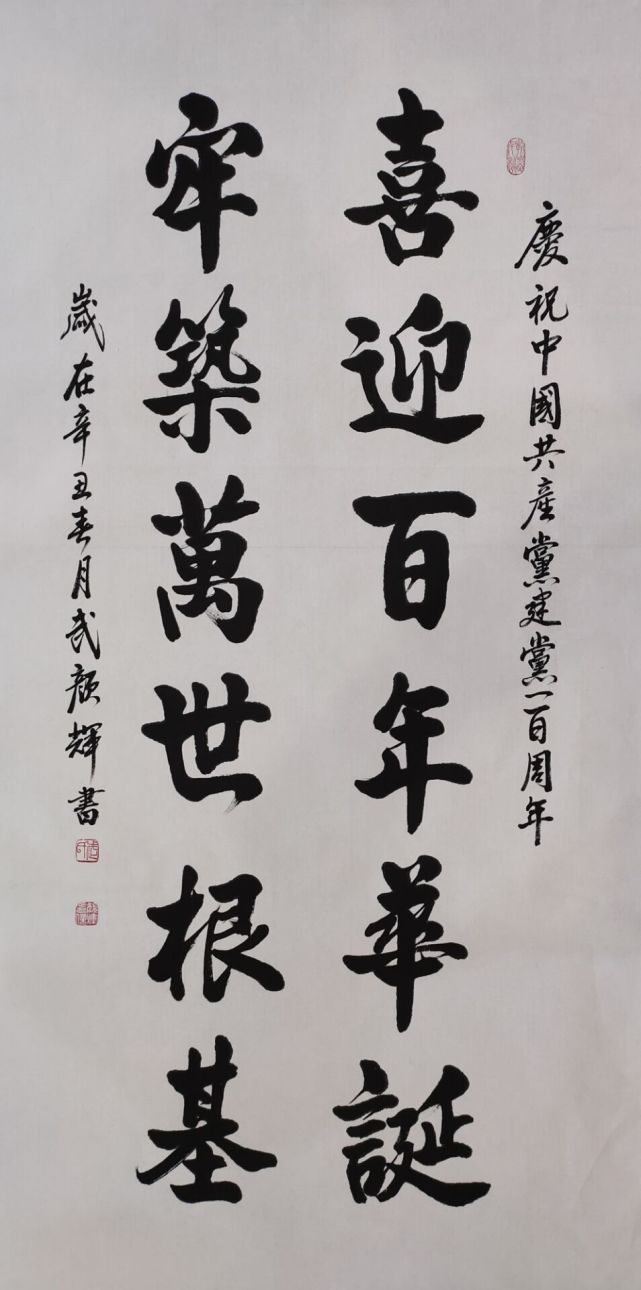 慶祝中國共産黨建黨一百周年
喜迎百年華誕
牢築萬世根基
歲在辛丑春月武顔輝書